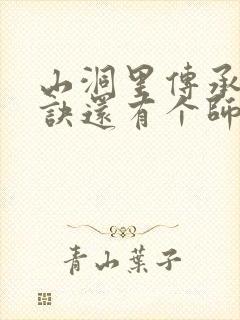 山洞里傳承
訣還有个師
青山葉子